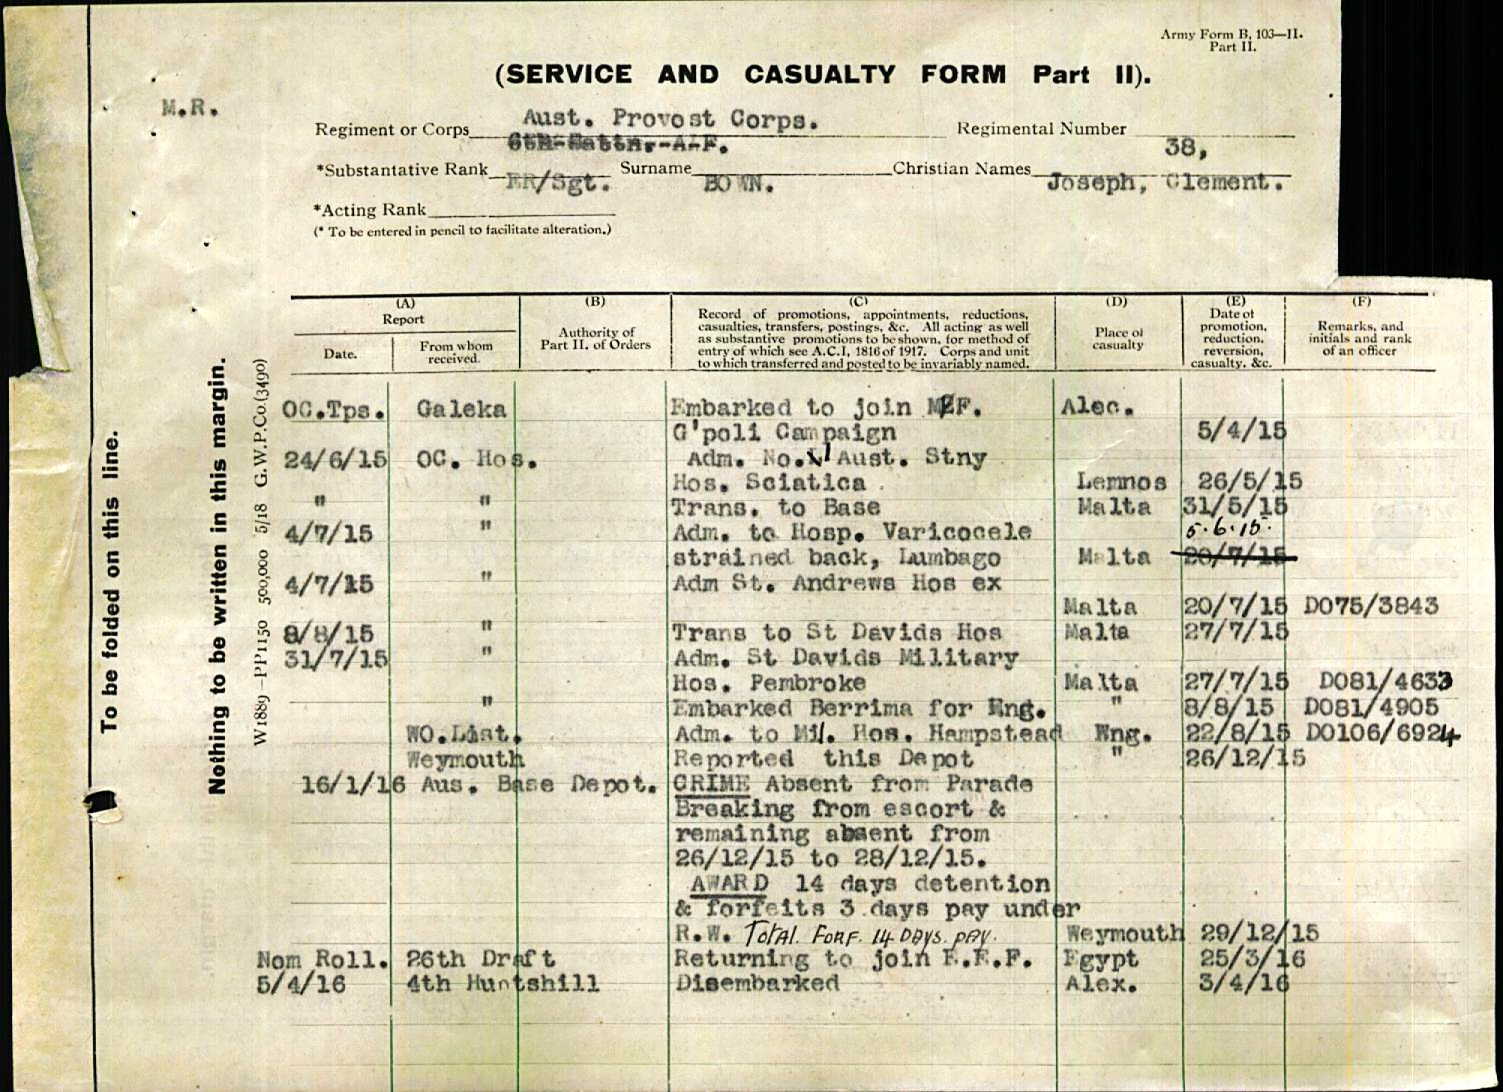 Army Form B, 103—II.
Part II.
(SERVICE AND CASUALTY FORM Part II).
M.R.
Regiment or Corps Aust. Provost Corps. Regimental Number
6th Battn. A.I.F. 38,
*Substantative Rank ER/Sgt. Surname BOWN. Christian Names Joseph, Clement.
*Acting Rank
(* To be entered in pencil to facilitate alteration.)
To be folded on this line.
Nothing to be written in this margin.
W 1889—PP1150 500,000 5/18 G.W.P.Co.(3490)
(A) (B) (C) (D) (E) (F)
Report
Date.
From whom
received.
Authority of
Part II. of Orders
Record of promotions, appointments, reductions,
casualties, transfers, postings, &c. All acting as well
as substantive promotions to be shown, for method of
entry of which see A.C.I, 1816 of 1917. Corps and unit
to which transferred and posted to be invariably named.
Place of
casualty
Date of
promotion,
reduction.
reversion,
casualty. &c.
Remarks, and
initials and rank
of an officer
OC.Tps. Galeka Embarked to join MEF. Alec.
G'poli Campaign 5/4/15
24/6/15 OC. Hos. Adm. No.1 Aust. Stny
Hos. Sciatica. Lemnos 26/5/15
" " Trans. to Base Malta 31/5/15
4/7/15 " Adm. to Hosp. Varicocele 5.6.15.
strained back, Lumbago Malta 20/7/15
4/7/15 " Adm St. Andrews Hos ex
Malta 20/7/15 DO75/3843
8/8/15 " Trans to St Davids Hos Malta 27/7/15
31/7/15 " Adm. St Davids Military
Hos. Pembroke Malta 27/7/15 DO81/4633
" Embarked Berrima for Eng. " 8/8/15 DO81/4905
WO.List. Adm. to Mil. Hos. Hampstead Eng. 22/8/15 DO106/6924
Weymouth Reported this Depot " 26/12/15
16/1/16 Aus. Base Depot. CRIME Absent from Parade
Breaking from escort &
remaining absent from
26/12/15 to 28/12/15.
AWARD 14 days detention
& forfeits 3 days pay under
R.W. TOTAL FORF. 14 DAYS. PAY. Weymouth 29/12/15
Nom Roll. 26th Draft Returning to join E.E.F. Egypt 25/3/16
5/4/16 4th Huntshill Disembarked Alex. 3/4/16